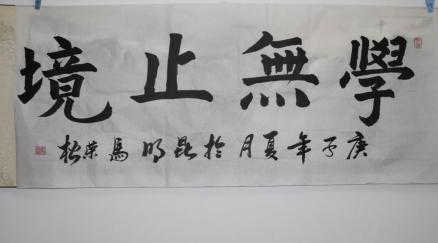 學無止境
庚子年夏月於昆明馬榮